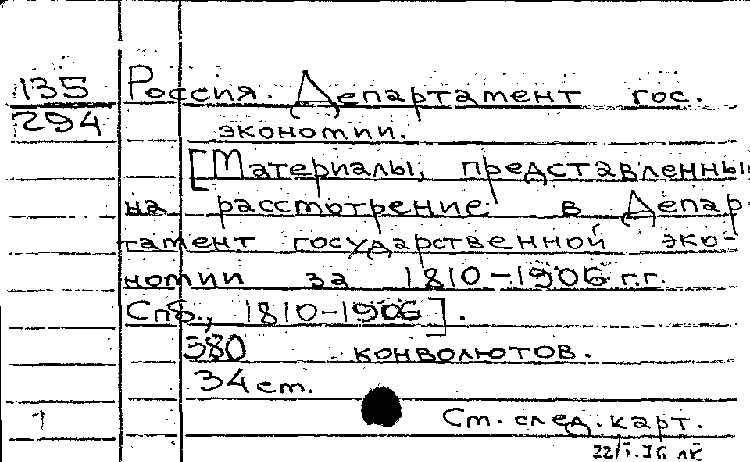 135 Россия. Департамент гос.
294 экономии.
[Материалы, представленны
на рассмотрение в Депар-
тамент государственной эко-
номии за 1810-1906 г.г.
Спб., 1810-1906].
380 конволютов.
34 cm.
1 Ст. след. карт.